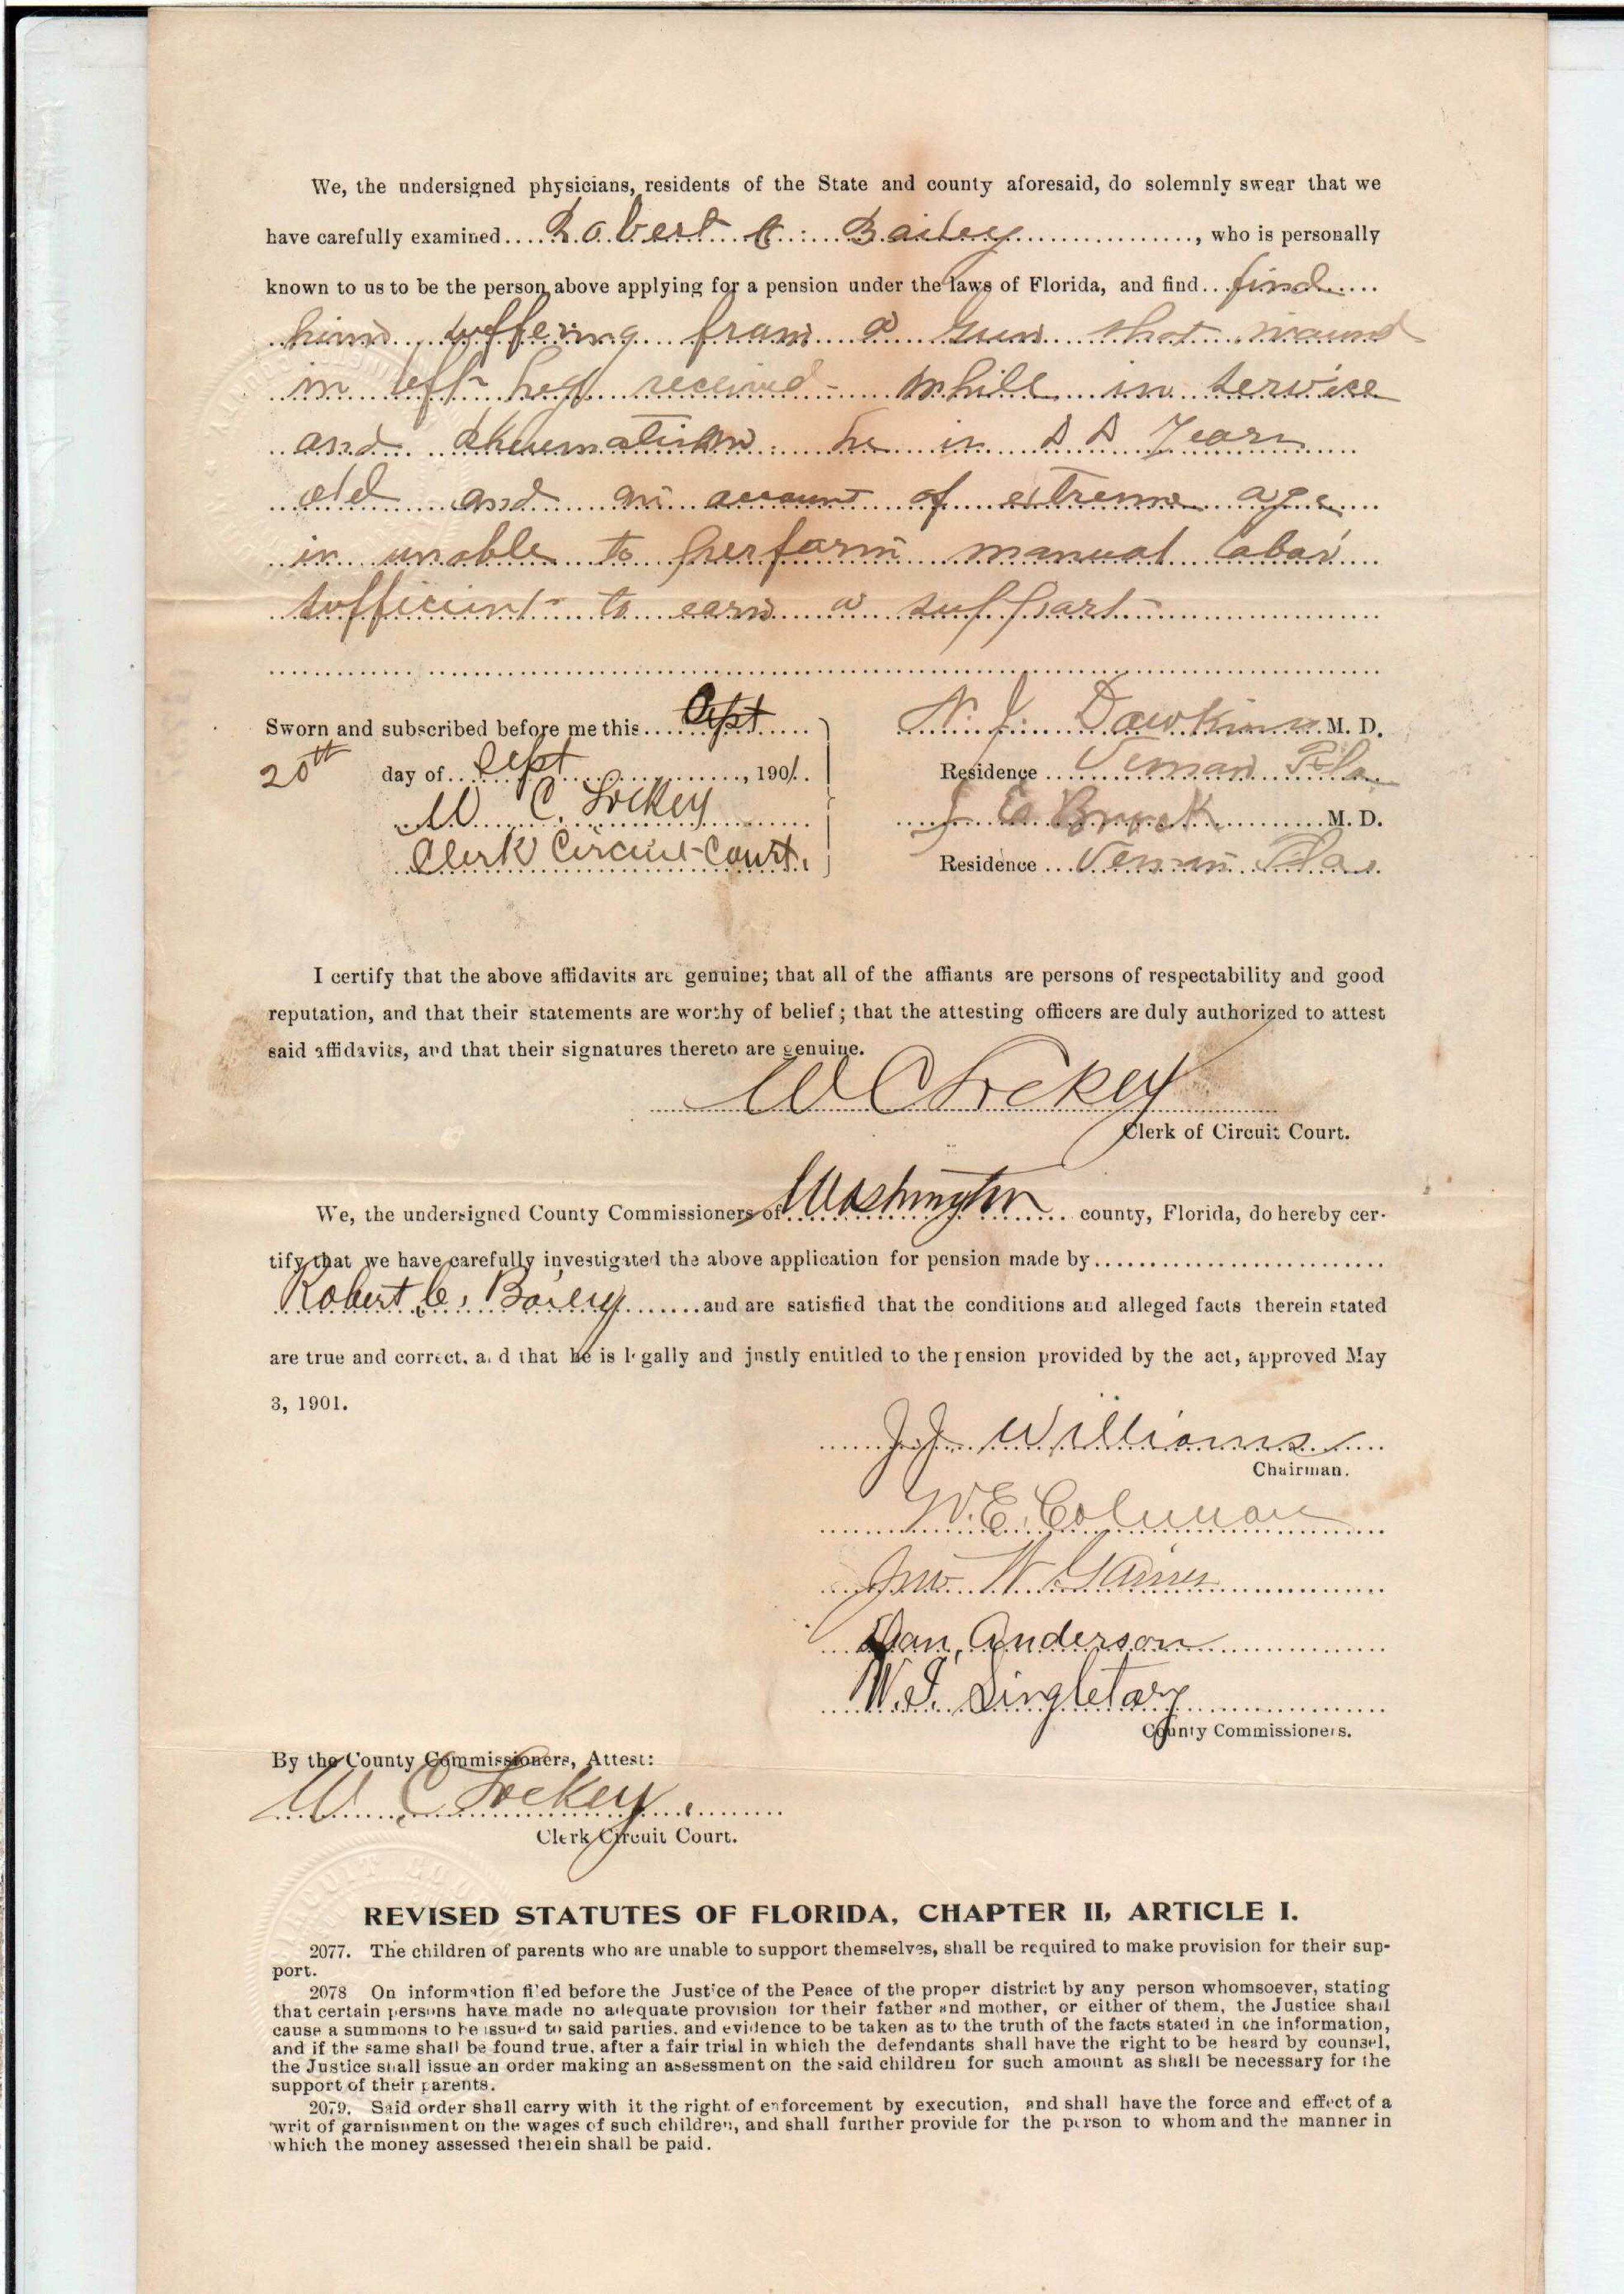 We, the undersigned physicians, residents of the State and county aforesaid, do solemnly swear that we
have carefully examined Robert C. Bailey, who is personally
known to us to be the person above applying for a pension under the laws of Florida, and find find
him suffering from a gun shot wound
in left received while in service
and Rheumatism he is Years
old and on account of extreme age
is unable to perform manual labor
sufficient to earn a support
Sworn and subscribed before me this Sept
20th day of Sept, 1901.
W. C. Lockey
Clerk Circuit Court.
N. J. Dawkins M. D.
Residence Vernon Fla.
J. E. M. D.
Residence Vernon Fla.
I certify that the above affidavits are genuine; that all of the affiants are persons of respectability and good
reputation, and that their statements are worthy of belief; that the attesting officers are duly authorized to attest
said affidavits, and that their signatures thereto are genuine.
W C Lockey
Clerk of Circuit Court.
We, the undersigned County Commissioners of Washington county, Florida, do hereby cer-
tify that we have carefully investigated the above application for pension made by
Robert C. Bailey and are satisfied that the conditions and alleged facts therein stated
are true and correct, and that he is legally and justly entitled to the pension provided by the act, approved May
3, 1901.
J J Williams
Chairman.
W. E. Coleman
Jno. W Gainer
Dan Anderson
W. J. Singletary
County Commissioners.
By the County Commissioners, Attest:
W C Lockey.
Clerk Circuit Court.
REVISED STATUTES OF FLORIDA, CHAPTER II, ARTICLE I.
2077. The children of parents who are unable to support themselves, shall be required to make provision for their sup-
port.
2078 On information filed before the Justice of the Peace of the proper district by any person whomsoever, stating
that certain persons have made no adequate provision for their father and mother, or either of them, the Justice shall
cause a summons to be issued to said parties, and evidence to be taken as to the truth of the facts stated in the information,
and if the same shall be found true, after a fair trial in which the defendants shall have the right to be heard by counsel,
the Justice shall issue an order making an assessment on the said children for such amount as shall be necessary for the
support of their parents.
2079. Said order shall carry with it the right of enforcement by execution, and shall have the force and effect of a
writ of garnishment on the wages of such children, and shall further provide for the person to whom and the manner in
which the money assessed therein shall be paid.